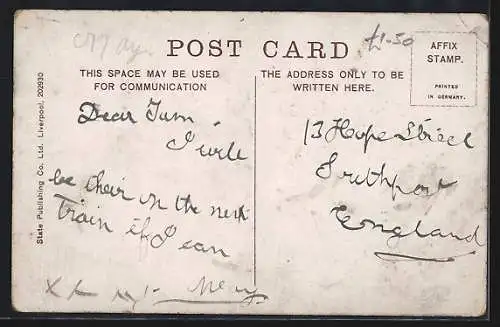 £1-50
POST CARD
AFFIX
STAMP.
PRINTED
IN GERMANY.
THIS SPACE MAY BE USED
FOR COMMUNICATION
THE ADDRESS ONLY TO BE
WRITTEN HERE.
State Publishing Co. Ltd. Liverpool. 202930
Dear
I will
be their on the next
Train if I can
X X
13 Hope Street
Southport
England